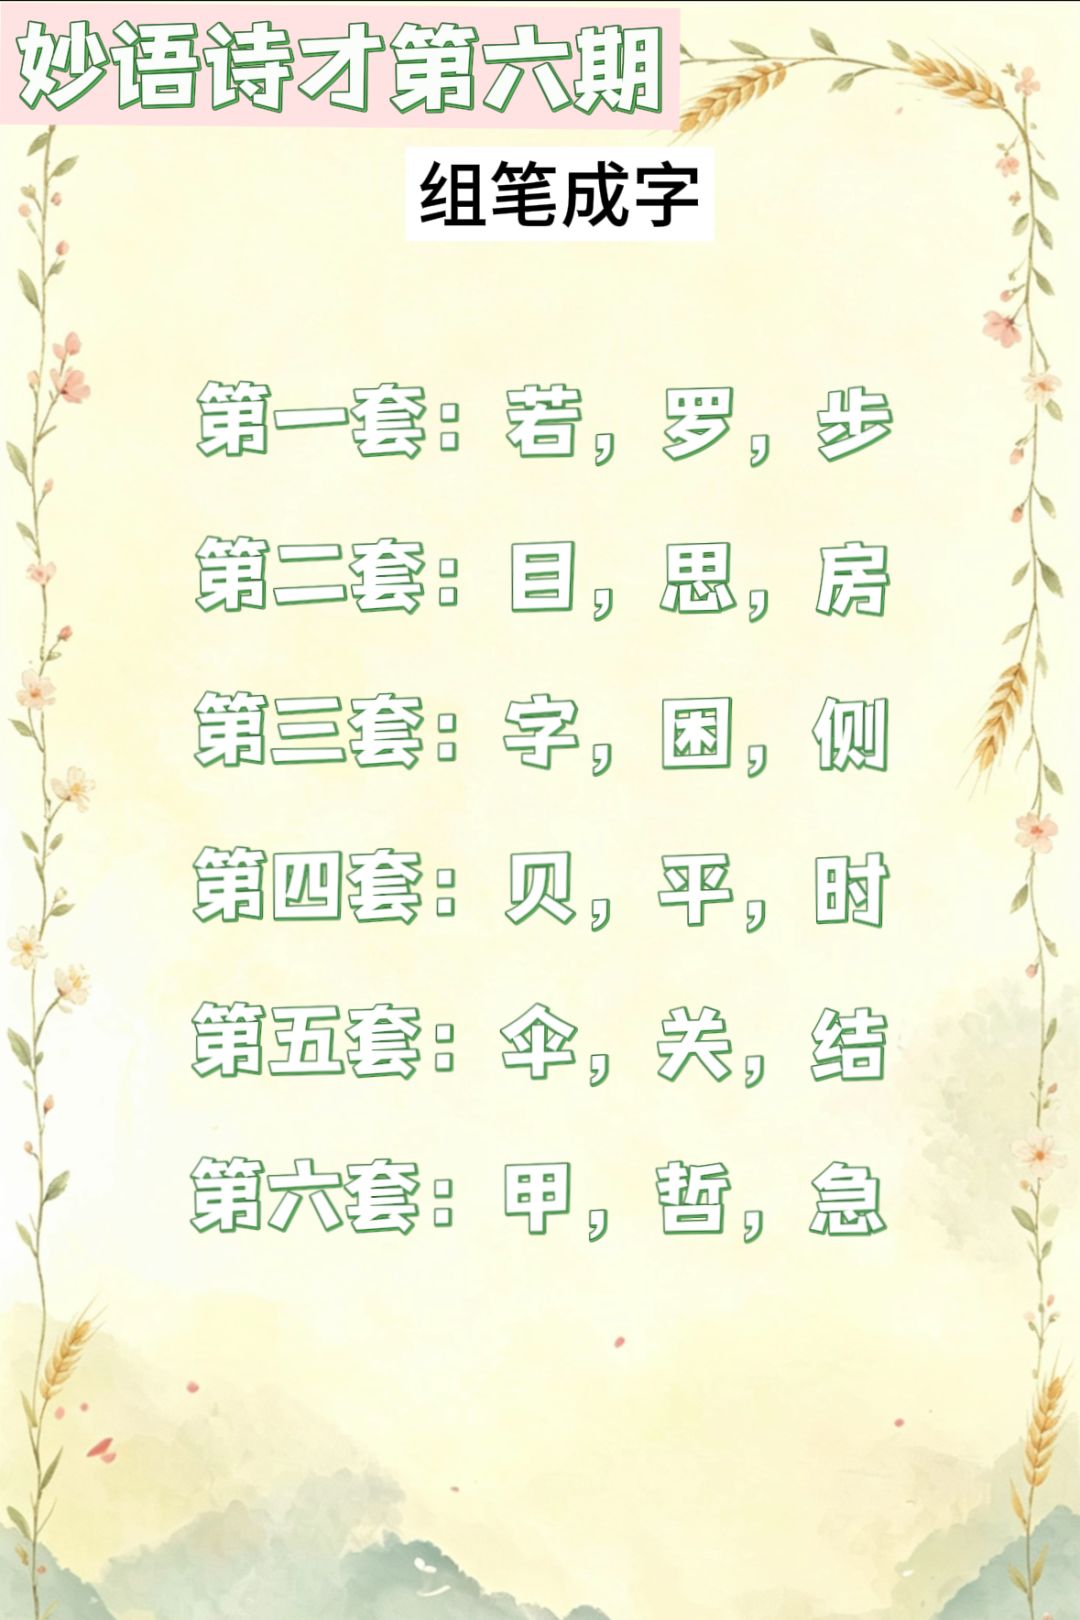 妙语诗才第六期
组笔成字
第一套：若，罗，步
第二套：目，思，房
第三套：字，困，侧
第四套：贝，平，时
第五套：伞，关，结
第六套：甲，哲，急